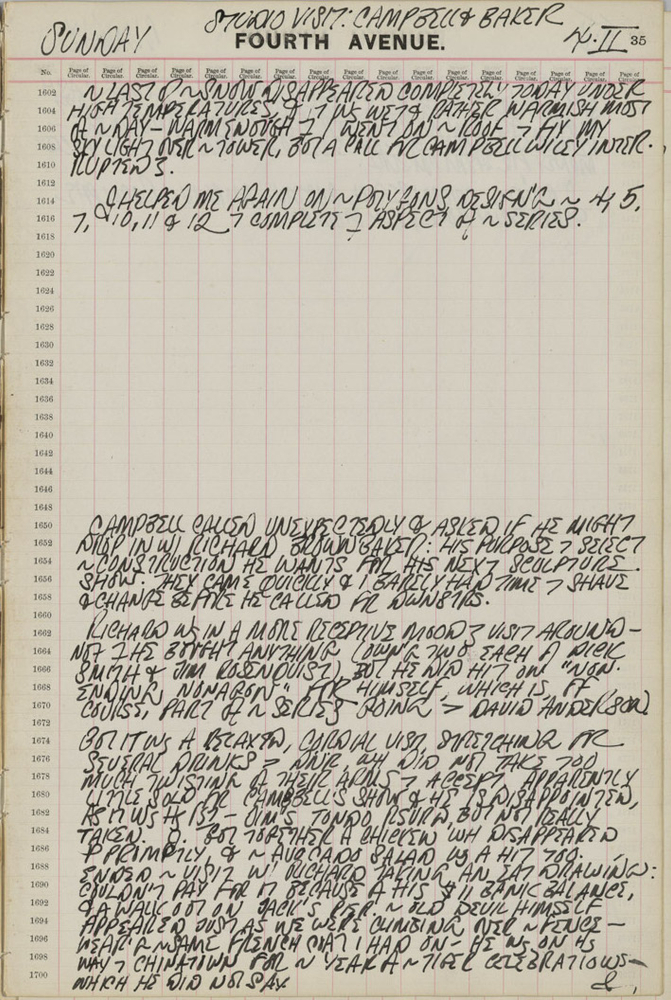 STUDIO VISIT: CAMPBELL & BAKER
SUNDAY
FOURTH AVENUE.
4·II
35
No. Page of Circular. Page of Circular. Page of Circular. Page of Circular. Page of Circular. Page of Circular. Page of Circular. Page of Circular. Page of Circular. Page of Circular. Page of Circular. Page of Circular. Page of Circular. Page of Circular. Page of Circular. Page of Circular.
1602 ~ LAST O ~ SNOW DISAPPEARED COMPLETELY TODAY UNDER
1604 HIGH TEMPERATURES, & IT WS WET & RATHER WARMISH MOST
1606 OF ~ DAY – WARM ENOUGH I WENT ON ~ ROOF FIX MY
1608 SKYLIGHT OVER ~ TOWER, BUT A CALL FR CAMPBELL WILEY INTER-
1610 RUPTED
1612
1614 HELPED ME AGAIN ON ~ POLYGONS, DESIGN'G ~ 4, 5,
1616 7, 10, 11 & 12 COMPLETE ASPECT OF ~ SERIES.
1618
1620
1622
1624
1626
1628
1630
1632
1634
1636
1638
1640
1642
1644
1646
1648
1650 CAMPBELL CALLED UNEXPECTEDLY & ASKED IF HE MIGHT
1652 DROP IN W/ RICHARD BROWN BAKER: HIS PURPOSE SELECT
1654 ~ CONSTRUCTION HE WANTS FOR HIS NEXT SCULPTURE
1656 SHOW. THEY CAME QUICKLY & I BARELY HAD TIME SHAVE
1658 & CHANGE BEFORE HE CALLED FR DWNSTRS.
1660
1662 RICHARD WS IN A MORE RECEPTIVE MOOD VISIT AROUND –
1664 NOT HE BOUGHT ANYTHING (OWN'G TWO EACH A DICK
1666 SMITH & JIM ROSENQUIST) BUT HE DID HIT ON "NON-
1668 ENDING NONAGON" FOR HIMSELF, WHICH IS, OF
1670 COURSE, PART OF ~ SERIES GOING → DAVID ANDERSON
1672
1674 BUT IT WS A RELAXED, CORDIAL VISIT, STRETCHING FR
1676 SEVERAL DRINKS > DNR, WH DID NOT TAKE TOO
1678 MUCH TWISTING OF THEIR ARMS ACCEPT. APPARENTLY
1680 LITTLE SOLD FR CAMPBELL'S SHOW & HE IS DISAPPOINTED,
1682 JIM'S TONDO RSURD, BUT NOT REALLY
1684 TAKEN. GOT TOGETHER A CHICKEN WH DISAPPEARED
1686 PROMPTLY, & ~ AVOCADO SALAD WS A HIT TOO.
1688 ENDED ~ VISIT W/ RICHARD TAKING AN EAT DRAWING:
1690 COULDN'T PAY FOR IT BECAUSE A HIS $11 BANK BALANCE,
1692 & A WALK OUT ON JACK'S PIER. ~ OLD DEVIL HIMSELF
1694 APPEARED JUST AS WE WERE CLIMBING OVER ~ FENCE –
1696 WEAR'G ~ SAME FRENCH COAT I HAD ON – HE WS ON HS
1698 WAY CHINATOWN FOR ~ YEAR A ~ TIGER CELEBRATIONS –
1700 WHICH HE DID NOT SAY